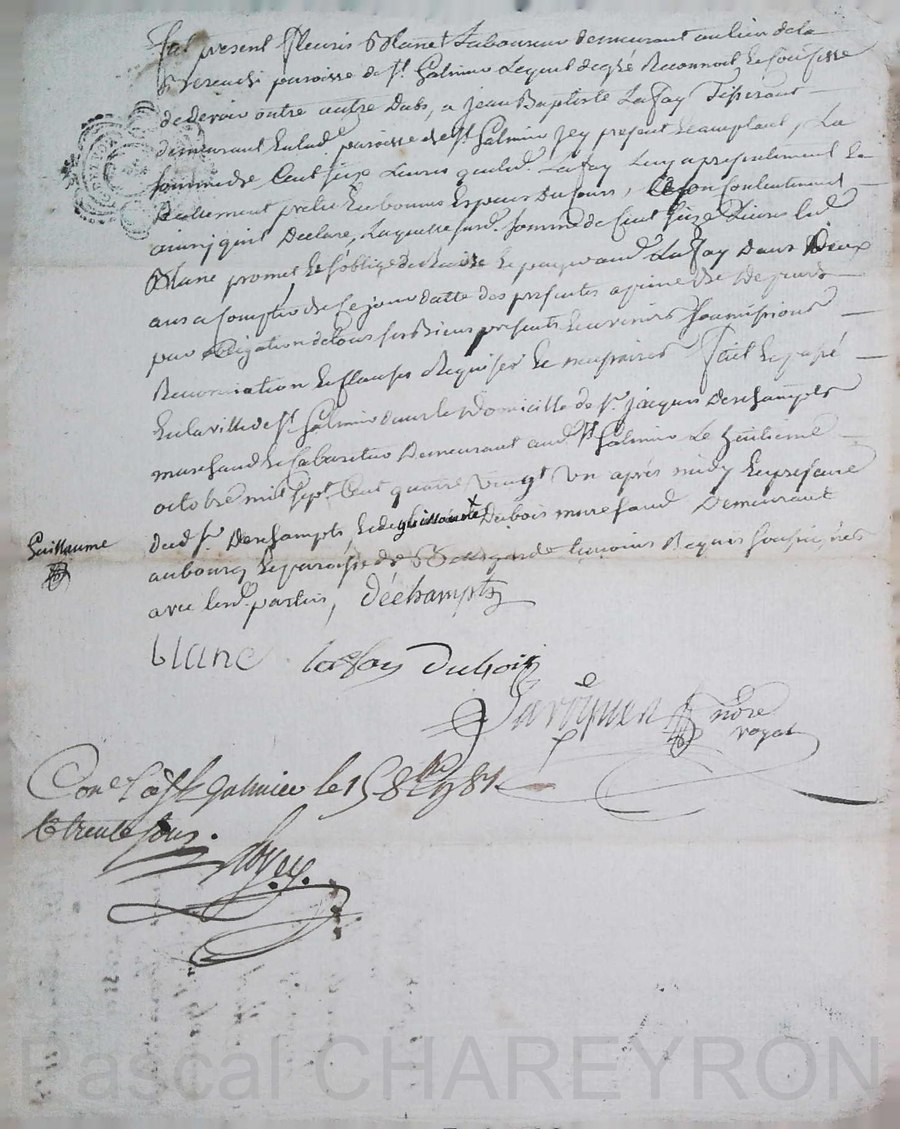 fut present fleuris Blanc Laboureur demeurant au lieu de la
paroisse de St. Galmier Lequel de gré Reconnoit
de devoir outre autre Dubs, a jean Baptiste Lafay Tisserant
demeurant Enlad. paroisse de St. Galmier jcy présent Eacceptant, La
somme de Cent seize Livres queled. Lafay Luy a
Reellement Enbonnes Especes Du Cours,
ainsy quil Declare, Laquelle susd. somme de Cent seize Livres led.
Blanc promet, Et soblige de payer aud. Lafay Dans Deux
ans a Compter de Ce jour datte des presentes apeine de
par obligation de tous ses Biens presents Eavenirs soumissions
Renonciation Et clauses Requises Fait Et passé
En la ville de St. Galmier dans le Domicille de Sr. jacques Deschampts
marchand Et Cabaretier Demeurant aud. St. Galmier Le huitieme
octobre mil sept Cent quatre vingt un après midy En presence
dud. Sr. Deschampts Et de guillaume Dubois marchand Demeurant
Guillaume
au bourg Et paroisse de temoins Requis soussignés
avec lesd. parties, Déchampts
blanc lafay Dubois
nore
royal
Con.le a St. galmier le 15 8bre 1781
trente sous.
Pascal CHAREYRON